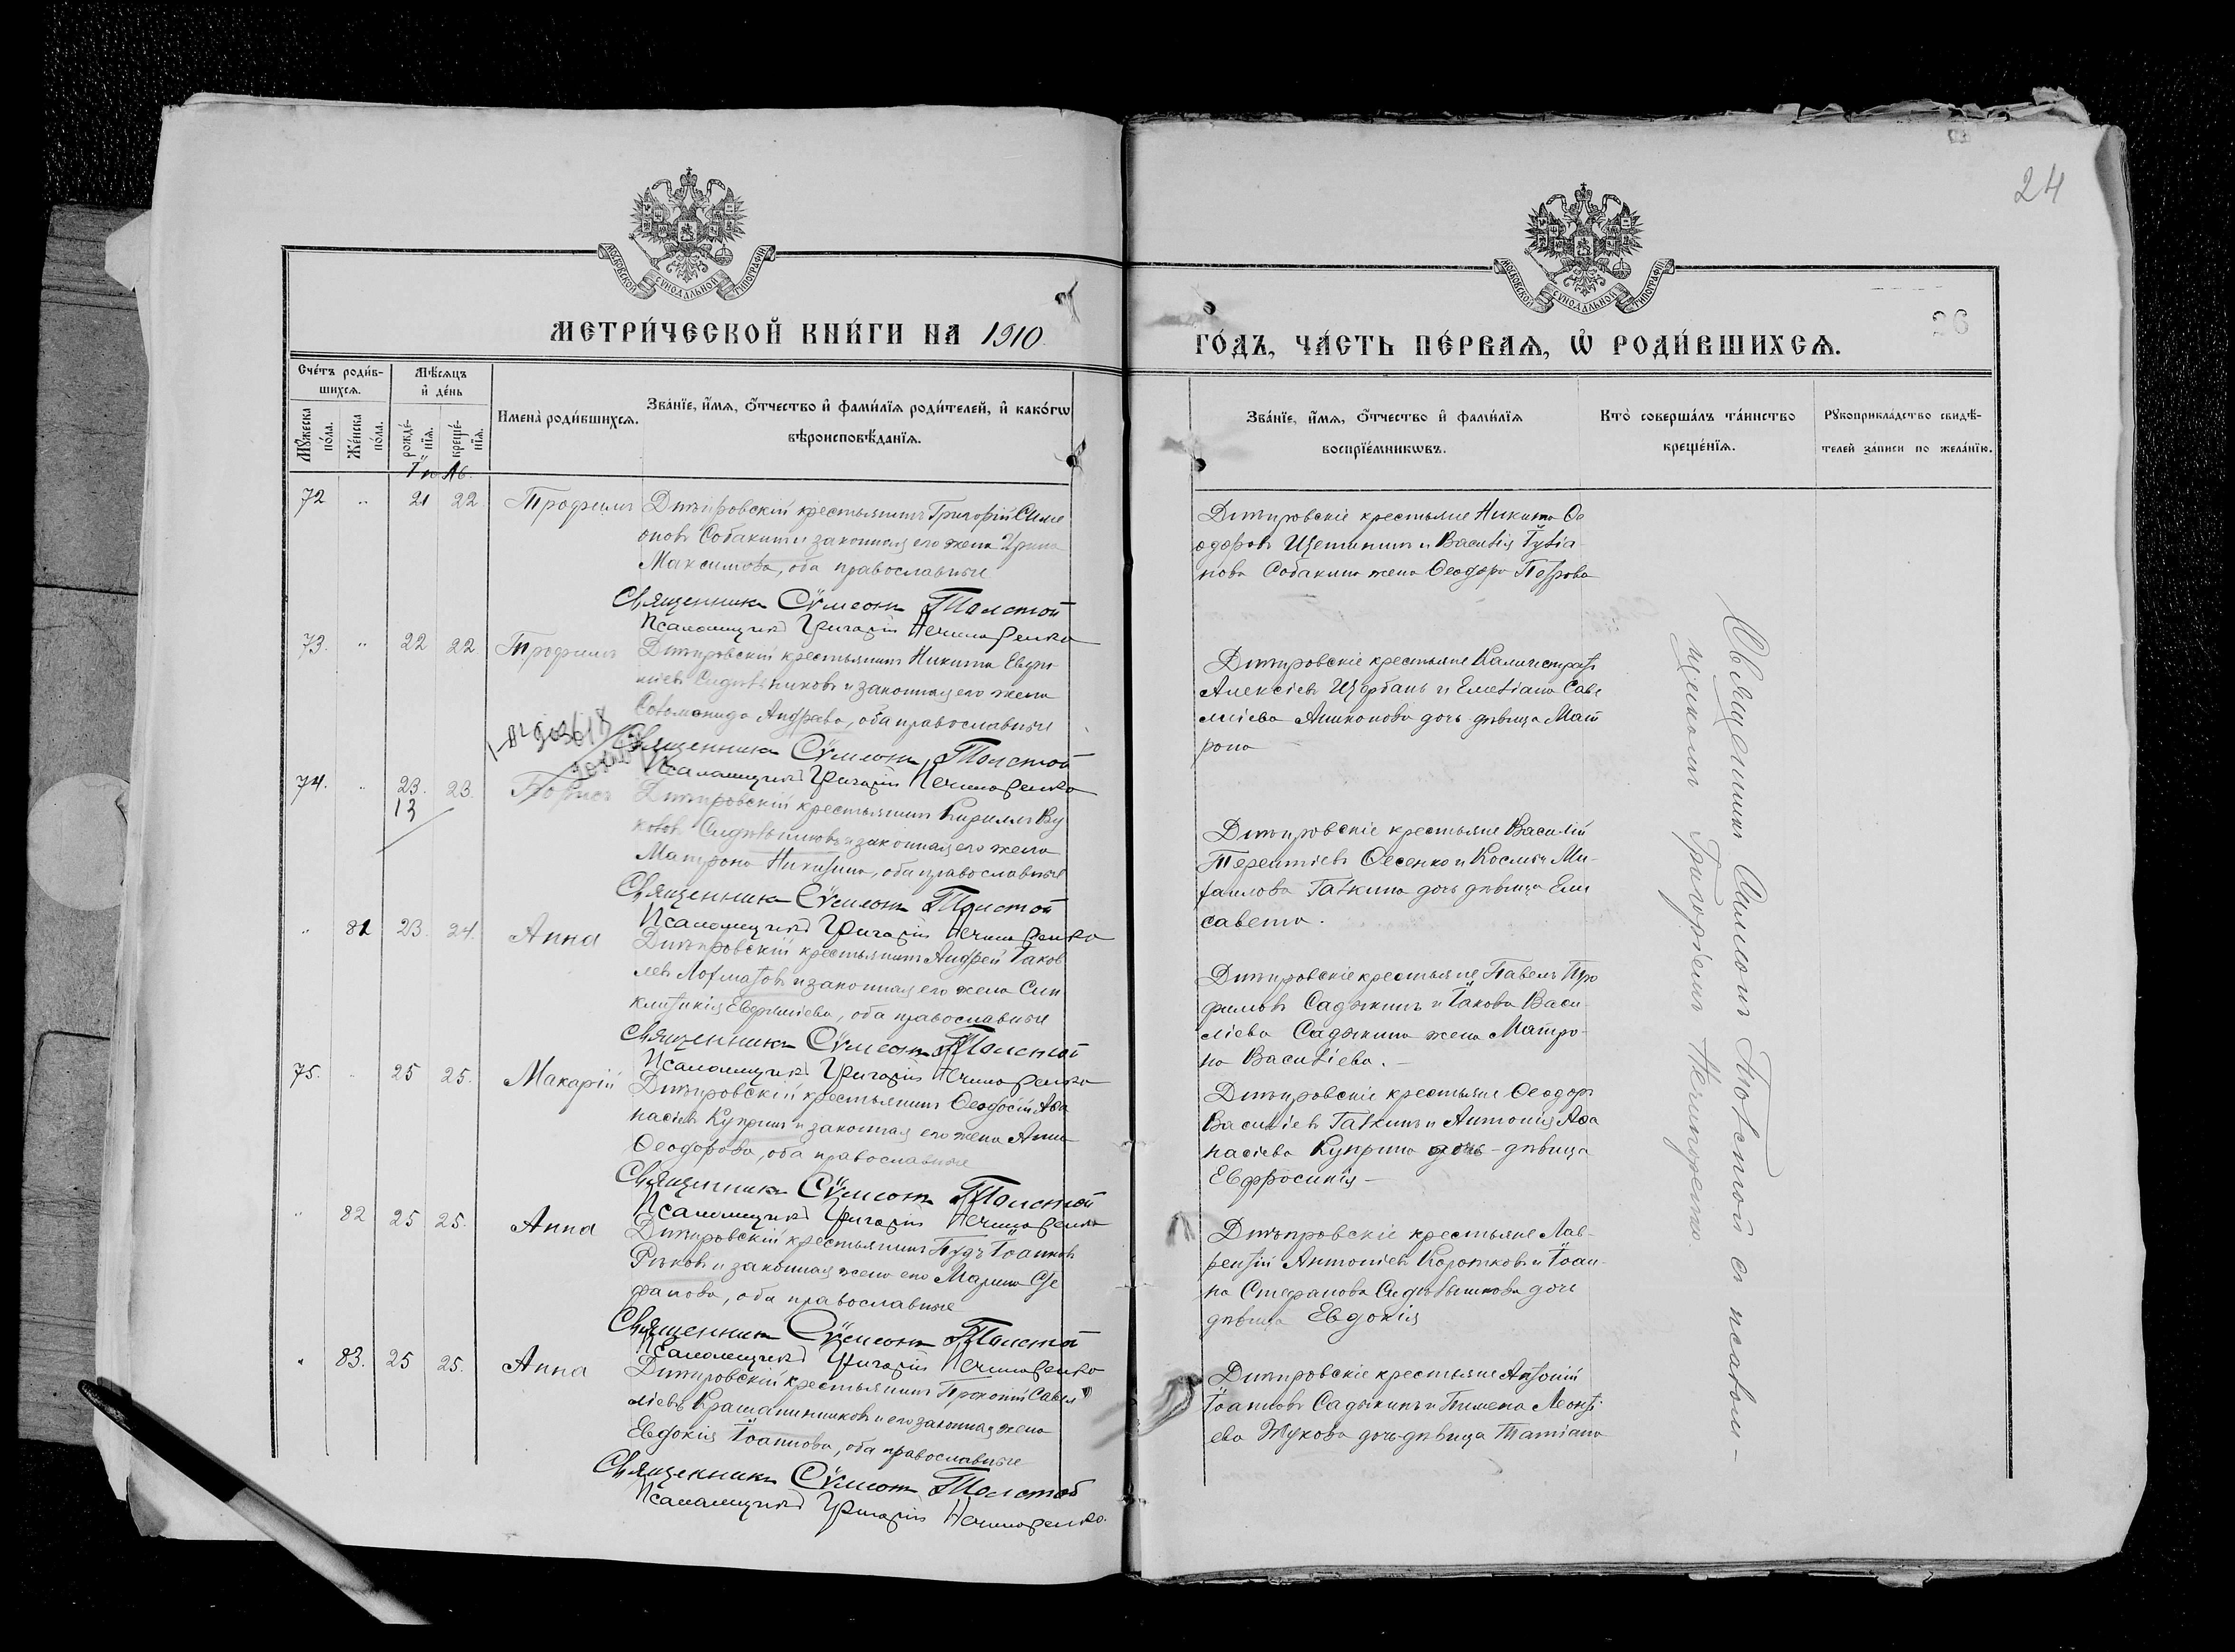 24
26
МОСКОВСКОЙ СѴНОДАЛЬНОЙ ТИПОГРАФІИ
МОСКОВСКОЙ СѴНОДАЛЬНОЙ ТИПОГРАФІИ
МЕТРИ́ЧЕСКОЙ КНИ́ГИ НА 1910
ГО́ДЪ, ЧА́СТЬ ПЕ́РВАЯ, Ѡ҆ РОДИ́ВШИХСЯ.
Сче́тъ роди́в-
шихся.
Мꙋ́жеска по́ла.
Же́нска по́ла.
Мѣ́сяцъ
и҆ де́нь
рожде́-
нїя.
креще́-
нїя.
Имена̀ роди́вшихся.
Зва́нїе, и҆́мя, ѻ҆́тчество и҆ фами́лїя роди́телей, и҆ како́гѡ
вѣроисповѣ́данїя.
Зва́нїе, и҆́мя, ѻ҆́тчество и҆ фами́лїя
воспрїе́мникѡвъ.
Кто̀ соверша́лъ та́инство
креще́нїя.
Рꙋкоприкла́дство свидѣ́-
телей за́писи по жела́нїю.
72 " 21 22 Трофимъ
Днѣпровскій крестьянинъ Григорій Симе
оновъ Собакинъ и законная его жена Ирина
Максимова, оба православные
Священникъ Сѵмеонъ Толстой
Псаломщикъ Григорій Нечипоренко
Днѣпровскіе крестьяне Никита Ѳе
одоровъ Щетининъ и Василія
Собакина жена Ѳеодора Петрова
73. " 22 22 Трофимъ
Днѣпровскій крестьянинъ Никита Евфи
міевъ Сидѣльниковъ и законная его жена
Соломонида Андреева, оба православные
Священникъ Сѵмеонъ Толстой
Псаломщикъ Григорій Нечипоренко
Днѣпровскіе крестьяне Каллистратъ
Алексіевъ Щербань и Емеліана Саве
ліева дочь дѣвица Мат
рона
74. " 23. 23. Борисъ
13
Днѣпровскій крестьянинъ Кириллъ Ву
коловъ Сидѣльниковъ и законная его жена
Матрона Никитина, оба православные
Священникъ Сѵмеонъ Толстой
Псаломщикъ Григорій Нечипоренко
Днѣпровскіе крестьяне Василій
Терентіевъ Ѳесенко и Космы Ми-
хаилова Галкина дочь дѣвица Ели
савета.
" 81 23. 24. Анна
Днѣпровскій крестьянинъ Андрей Іаков
левъ Лохматовъ и законная его жена Син
клитикія Евфиміева, оба православные
Священникъ Сѵмеонъ Толстой
Псаломщикъ Григорій Нечипоренко
Днѣпровскіе крестьяне Павелъ Тро
фимовъ Садыкинъ и Іакова Васи-
ліева Садыкина жена Матро-
на Василіева.
75. " 25 25. Макарій
Днѣпровскій крестьянинъ Ѳеодосій Аѳа
насіевъ Купринъ и законная его жена Анна
Ѳеодорова, оба православные
Священникъ Сѵмеонъ Толстой
Псаломщикъ Григорій Нечипоренко
Днѣпровскіе крестьяне Ѳеодоръ
Василіевъ Галкинъ и Антонія Аѳа
насіева Куприна дочь-дѣвица
Евфросинія
" 82 25 25. Анна
Днѣпровскій крестьянинъ Пудъ Іоанновъ
Рѣковъ и законная жена его Марина Сте
фанова, оба православные
Священникъ Сѵмеонъ Толстой
Псаломщикъ Григорій Нечипоренко
Днѣпровскіе крестьяне Лав-
рентій Антоніевъ Коротковъ и Іоан-
на Стефанова Сидѣльникова дочь
дѣвица Евдокія
" 83. 25 25. Анна
Днѣпровскій крестьянинъ Прокопій Савел
ліевъ Крашанинниковъ и его законная жена
Евдокія Іоаннова, оба православные
Священникъ Сѵмеонъ Толстой
Псаломщикъ Григорій Нечипоренко.
Днѣпровскіе крестьяне Антоній
Іоанновъ Садыкинъ и Пимена Леонт-
ева Жукова дочь-дѣвица Татіана
Священникъ Симеонъ Толстой съ псалом-
щикомъ Григоріемъ Нечипоренко